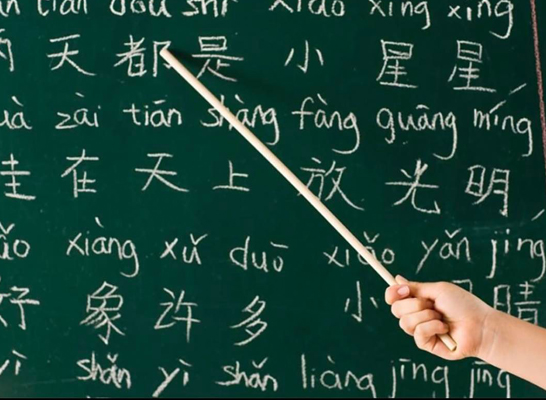 tiān dōu shì xiǎo xīng xīng
天 都 是 小 星 星
zài tiān shàng fàng guāng míng
在 天 上 放 光 明
xiàng xǔ duō xiǎo yǎn jīng
象 许 多 小 睛
shǎn yì shǎn liàng jīng jīng